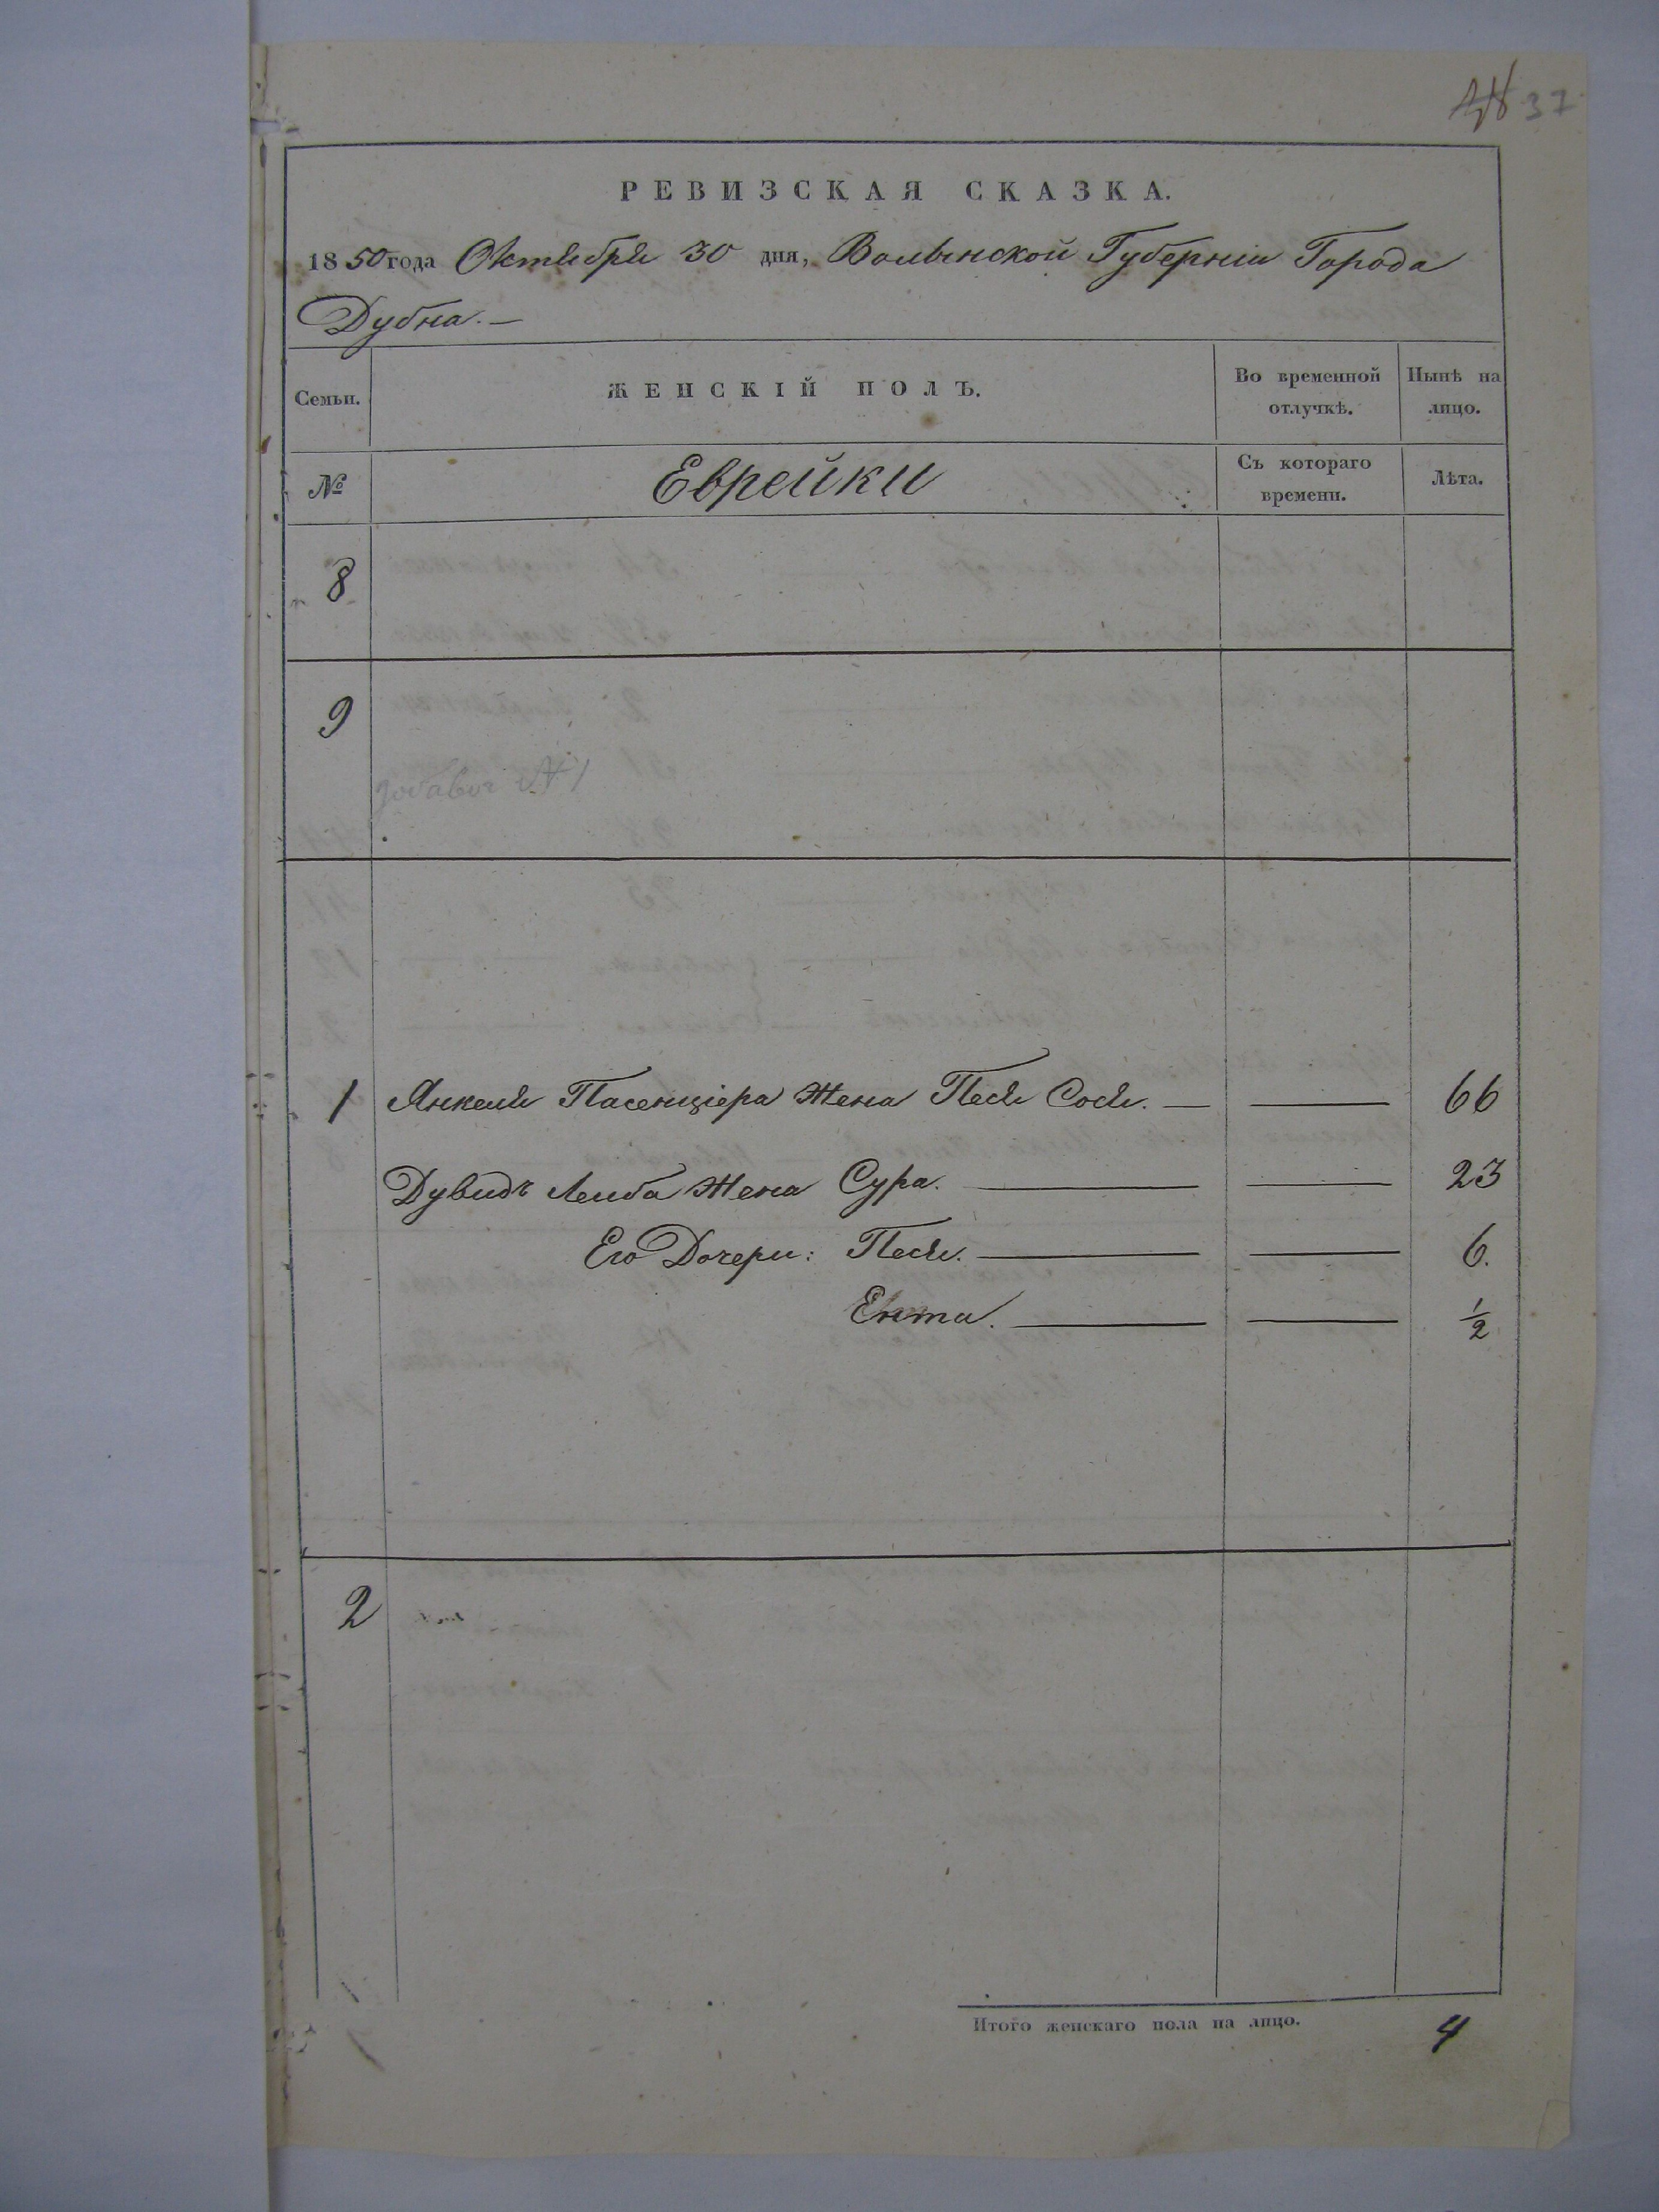 37
РЕВИЗСКАЯ СКАЗКА.
1850 года Октября 30 дня, Волынской Губерніи Города
Дубна. —
Семьи.
ЖЕНСКІЙ ПОЛЪ.
Во временной отлучкѣ.
Нынѣ на лицо.
№
Еврейки
Съ котораго времени.
Лѣта.
8
9
№ 1
1 Янкеля Пасенціера Жена Песя Сося. — — 66
Дувидъ Лейба Жена Сура. — — 23
Его Дочери: Песя. — — 6.
Ента. — — 1/2
2
Итого женскаго пола на лицо. 4